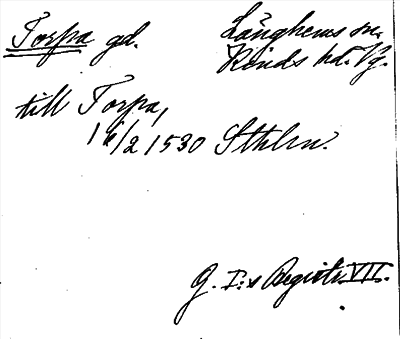 Torpa gd. Länghems sn.
Kinds hd. Vg.
till Torpa,
16/2 1530 Sthlm.
G. I:s Registr. VII.